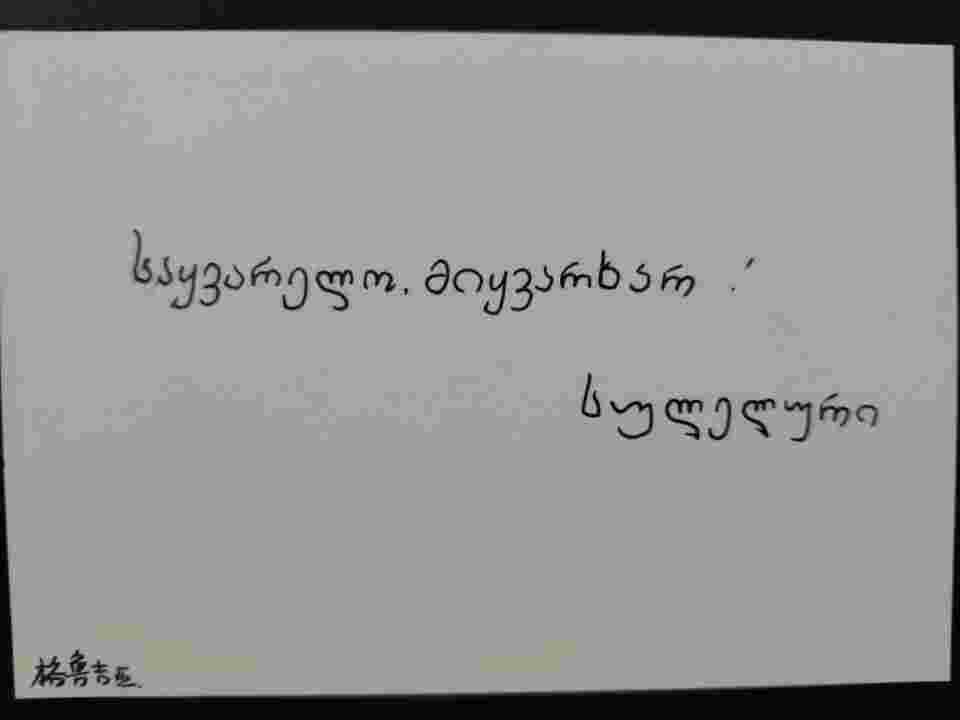 საყვარელო. მიყვარხარ !
სულელური
格鲁吉亚.